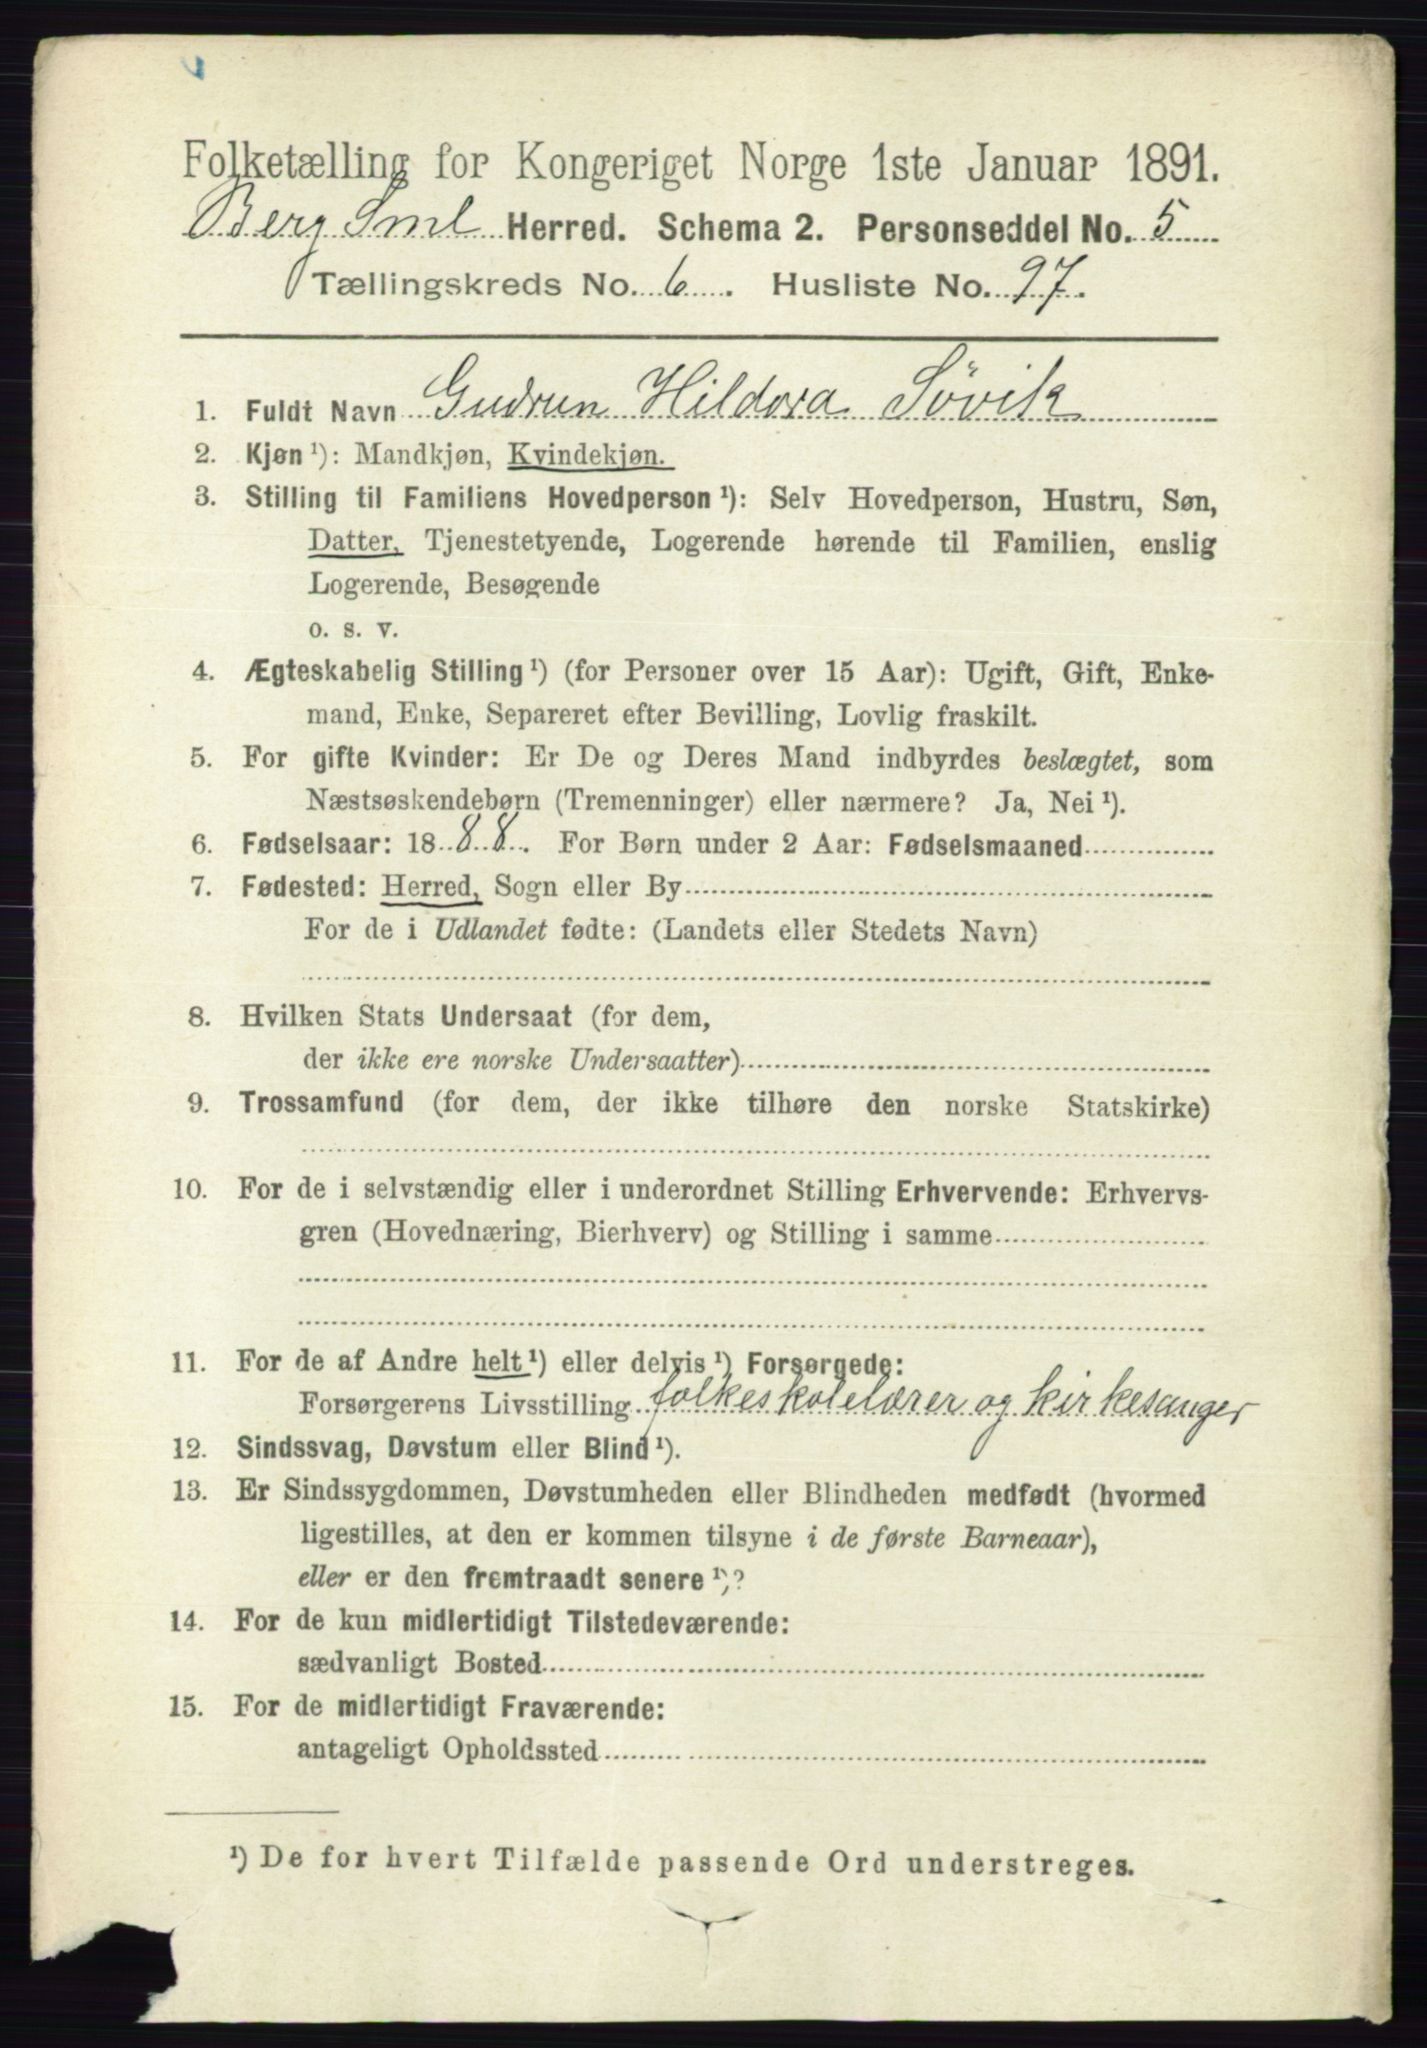 Folketælling for Kongeriget Norge 1ste Januar 1891.
Berg Sml Herred. Schema 2. Personseddel No. 5
Tællingskreds No. 6. Husliste No. 97.
1. Fuldt Navn Gudrun Hildora Søvik
2. Kjøn ¹): Mandkjøn, Kvindekjøn.
3. Stilling til Familiens Hovedperson ¹): Selv Hovedperson, Hustru, Søn,
Datter, Tjenestetyende, Logerende hørende til Familien, enslig
Logerende, Besøgende
o. s. v.
4. Ægteskabelig Stilling ¹) (for Personer over 15 Aar): Ugift, Gift, Enke-
mand, Enke, Separeret efter Bevilling, Lovlig fraskilt.
5. For gifte Kvinder: Er De og Deres Mand indbyrdes beslægtet, som
Næstsøskendebørn (Tremenninger) eller nærmere? Ja, Nei ¹).
6. Fødselsaar: 1888. For Børn under 2 Aar: Fødselsmaaned
7. Fødested: Herred, Sogn eller By
For de i Udlandet fødte: (Landets eller Stedets Navn)
8. Hvilken Stats Undersaat (for dem,
der ikke ere norske Undersaatter)
9. Trossamfund (for dem, der ikke tilhøre den norske Statskirke)
10. For de i selvstændig eller i underordnet Stilling Erhvervende: Erhvervs-
gren (Hovednæring, Bierhverv) og Stilling i samme
11. For de af Andre helt ¹) eller delvis ¹) Forsørgede:
Forsørgerens Livsstilling folkeskolelærer og kirkesanger
12. Sindssvag, Døvstum eller Blind ¹).
13. Er Sindssygdommen, Døvstumheden eller Blindheden medfødt (hvormed
ligestilles, at den er kommen tilsyne i de første Barneaar),
eller er den fremtraadt senere ¹)?
14. For de kun midlertidigt Tilstedeværende:
sædvanligt Bosted
15. For de midlertidigt Fraværende:
antageligt Opholdssted
¹) De for hvert Tilfælde passende Ord understreges.